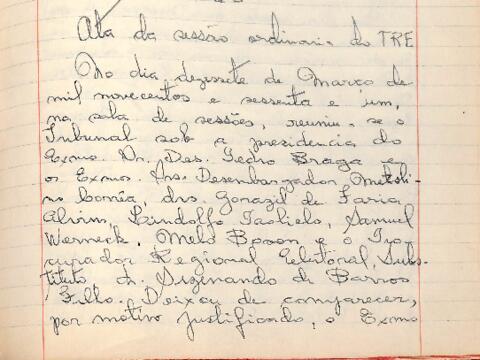 Ata da sessão ordinaria do TRE
No dia dezessete de Março de
mil novecentos e sessenta e um,
na sala de sessões, reuniu-se o
Tribunal sob a presidencia do
Exmo. Dr. Des. Pedro Braga e
os Exmos. Srs. Desembargador
no Corrêa, drs. Gorazil de Faria
Alvim, Lindolfo Paolielo, Samuel
Werneck, Melo Boson e o Pro
curador Regional Eleitoral, Subs-
tituto, dr. Sizenando de Barros
Filho. Deixou de comparecer,
por motivo justificado, o Exmo